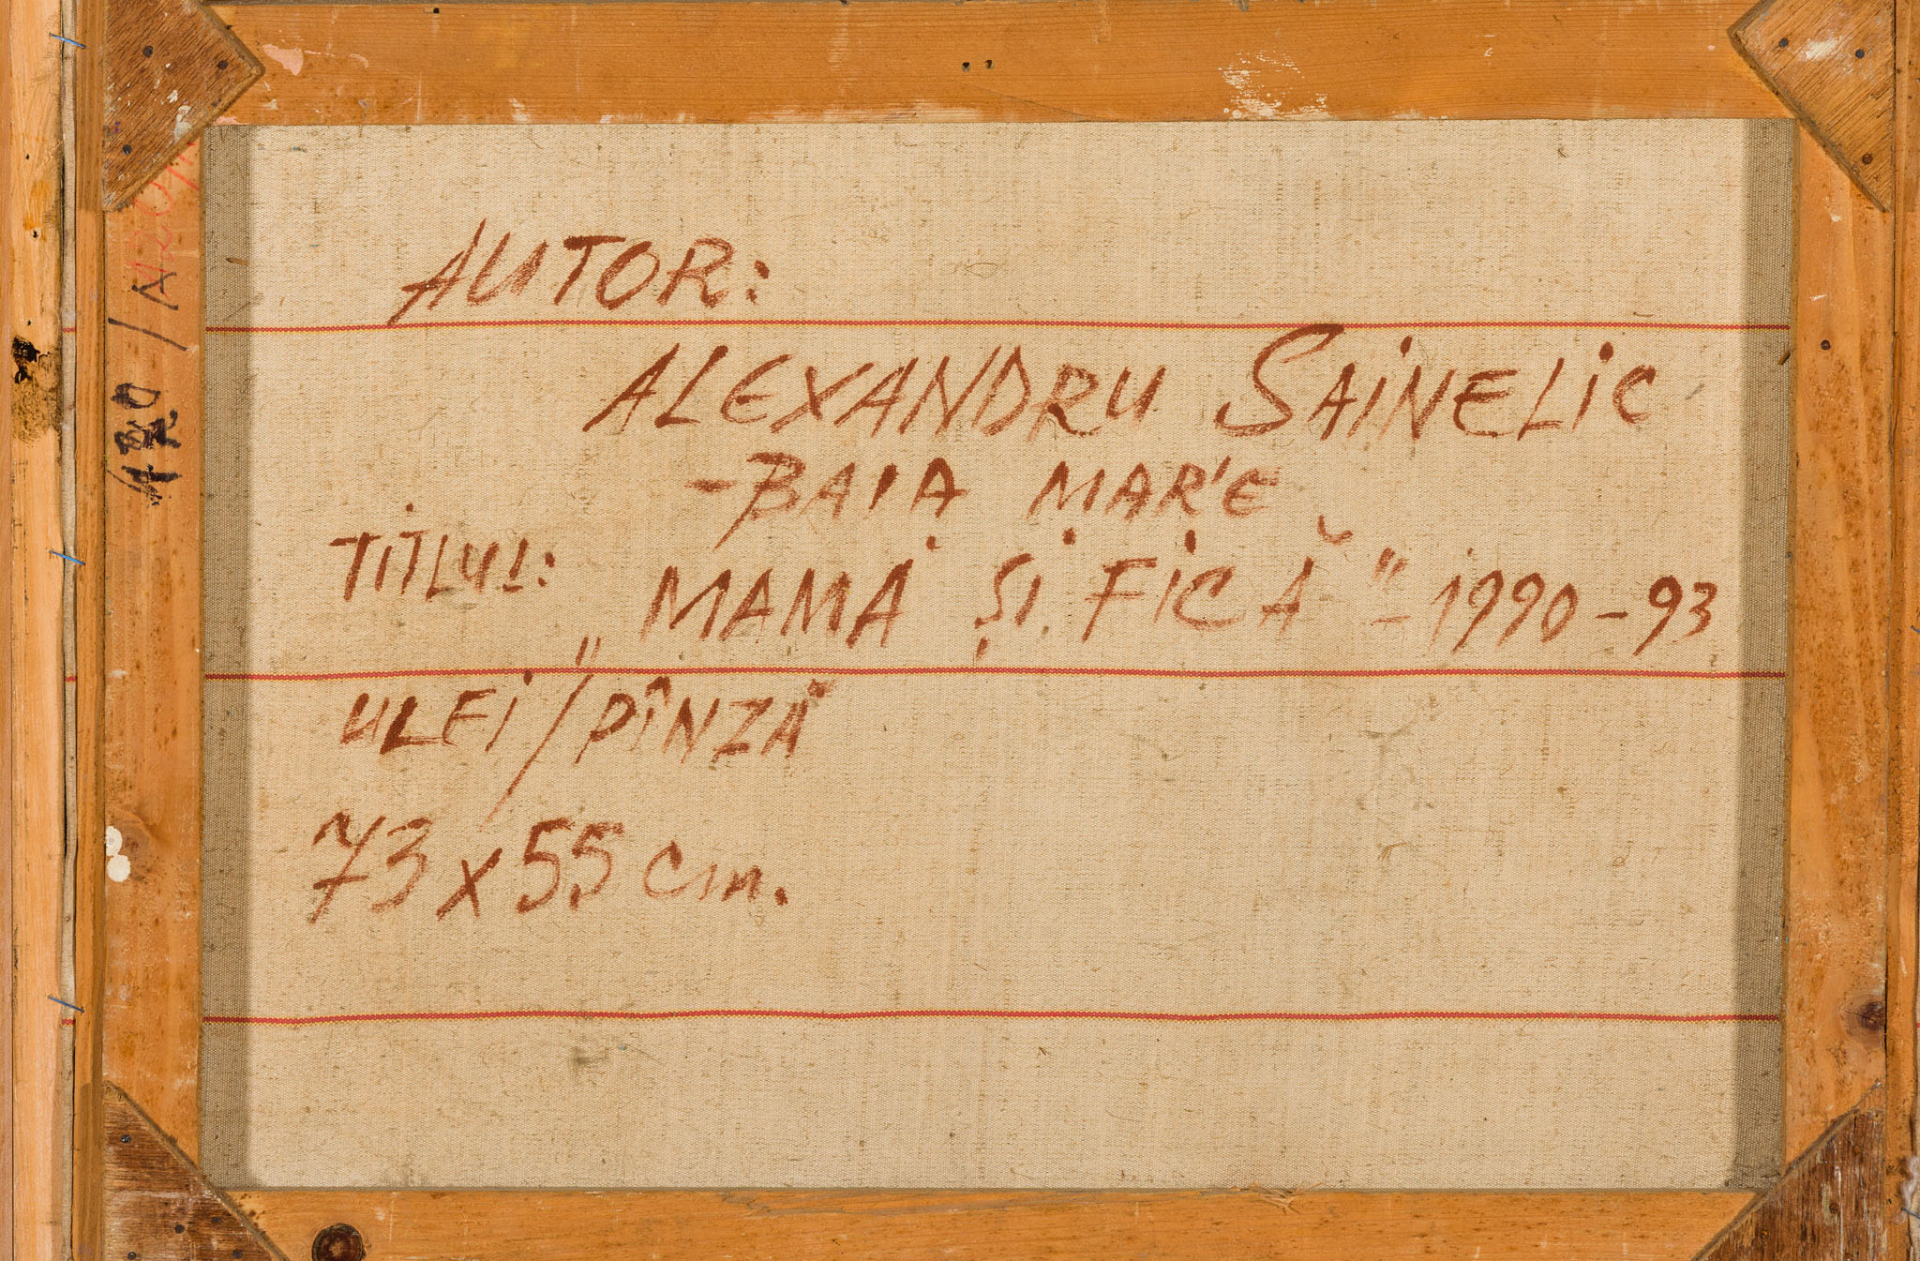 AUTOR:
ALEXANDRU SAINELIC
- BAIA MARE
TITLUL: „MAMĂ ȘI FICĂ" - 1990-93
ULEI/PÎNZĂ
73x55 cm.